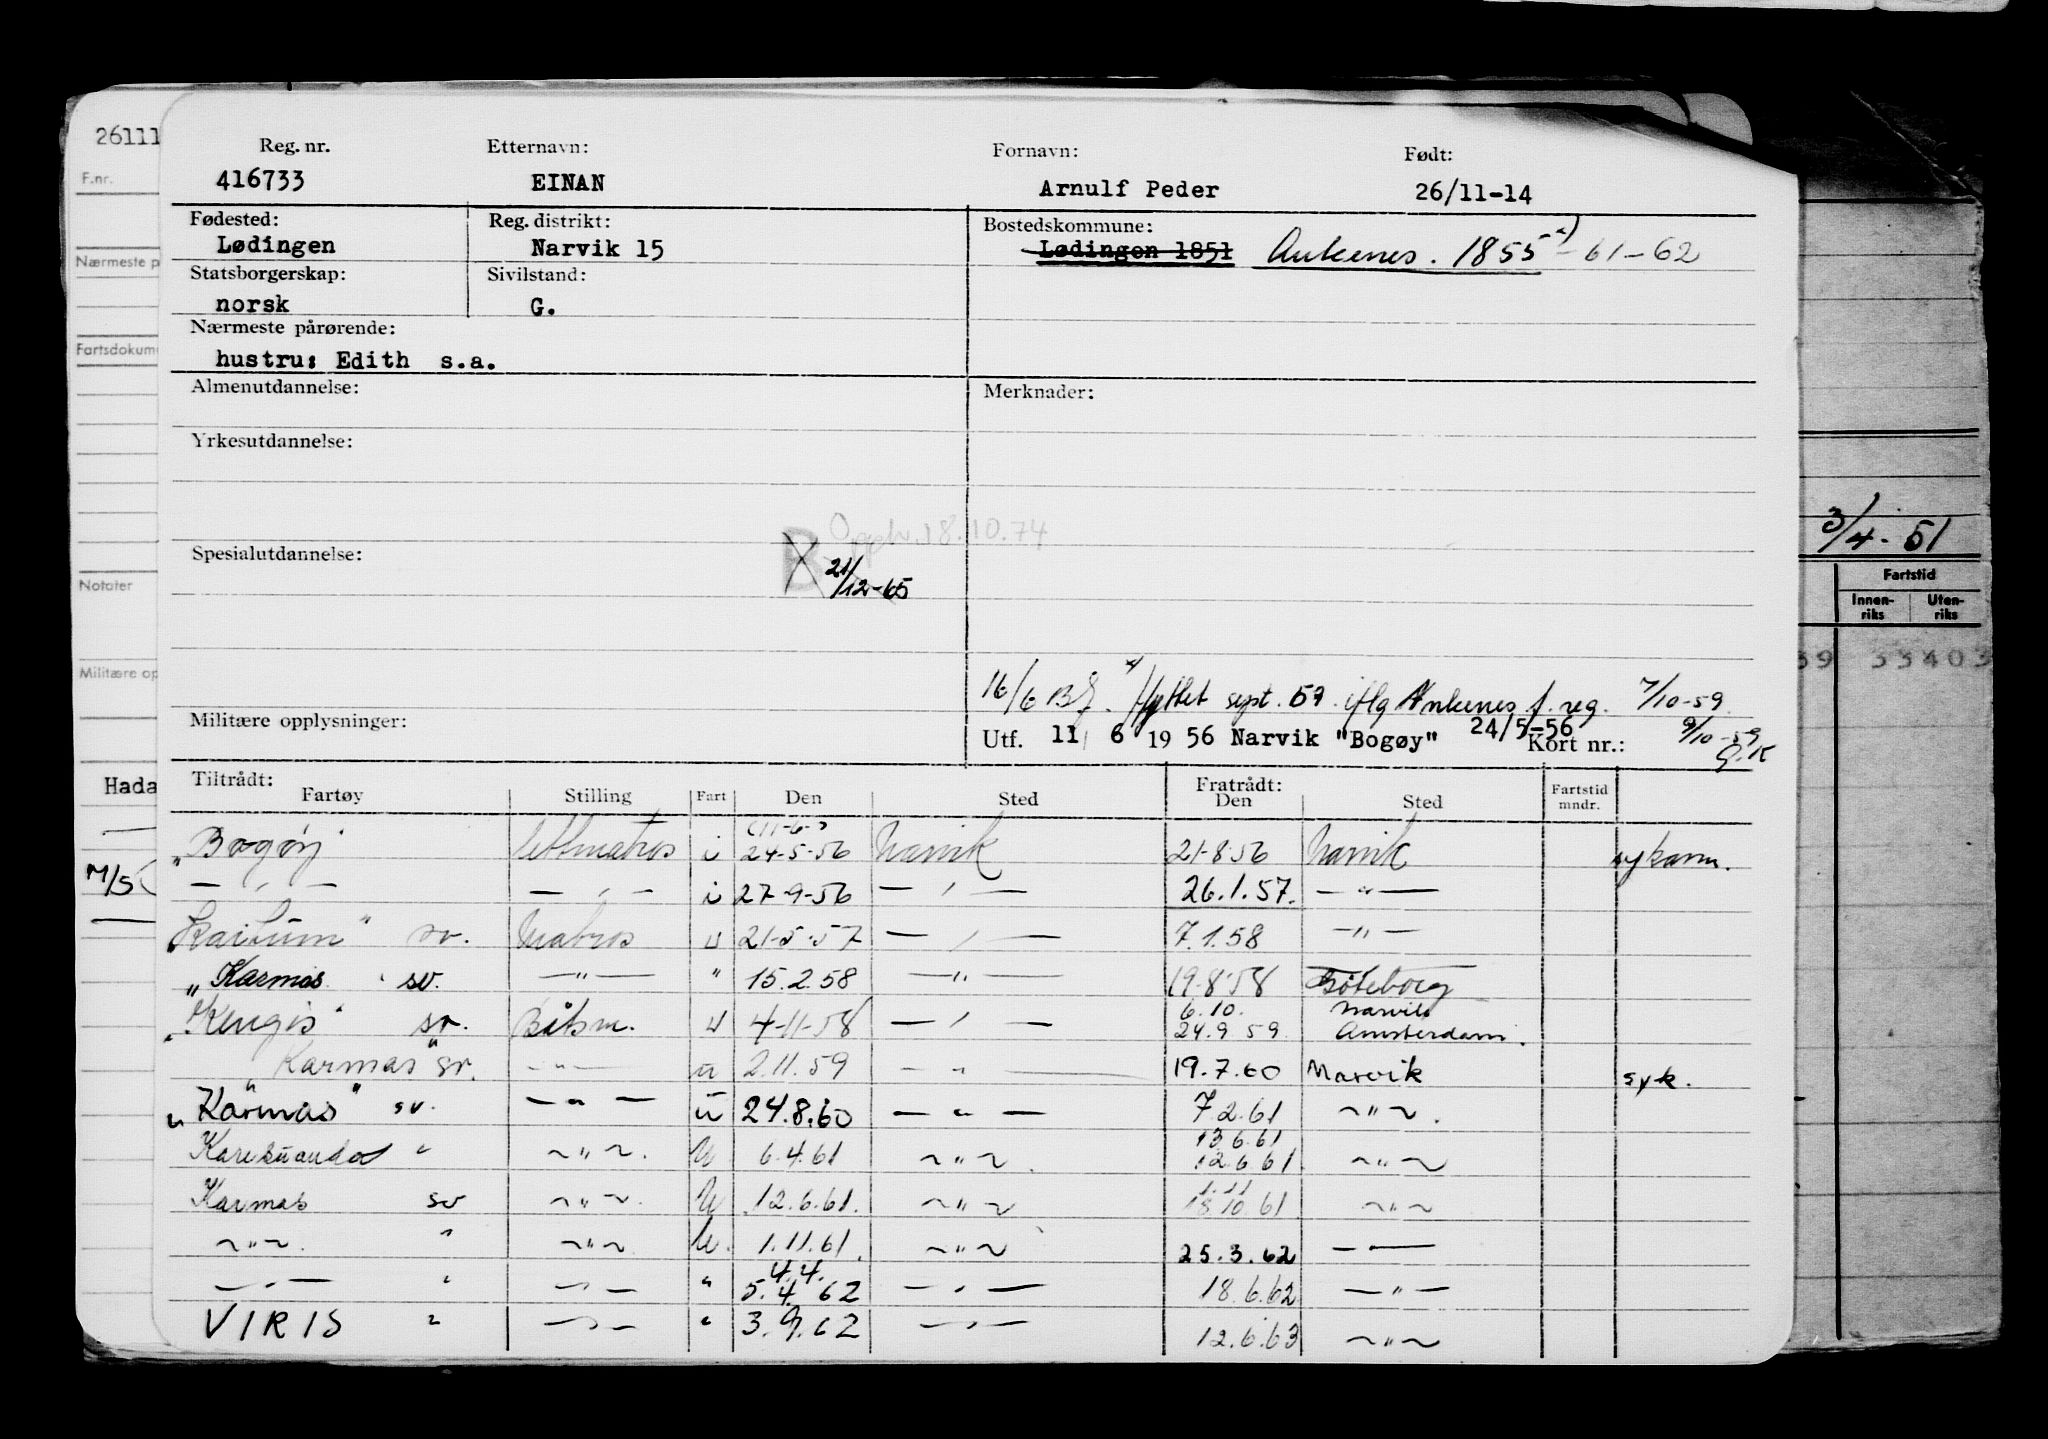 26111
F.nr.
Nærmeste p
Fartsdokum
Notater
Militære op
Hada
M/S
Reg. nr. Etternavn: Fornavn: Født:
416733 EINAN Arnulf Peder 26/11-14
Fødested: Reg. distrikt: Bostedskommune:
Lødingen Narvik 15 Lødingen 1851 Ankenes. 1855 -61-62
Statsborgerskap: Sivilstand:
norsk G.
Nærmeste pårørende:
hustru: Edith s.a.
Almenutdannelse: Merknader:
Yrkesutdannelse:
Opph. 18.10.74
Spesialutdannelse: B 21/12-65
16/6 Flyttet sept. 59 iflg Ankenes f. reg. 7/10-59
Militære opplysninger:
Utf. 11/6 1956 Narvik "Bogøy" 24/5-56 Kort nr.: 9/10-59
Tiltrådt: Fratrådt:
Fartøy Stilling Fart Den Sted Den Sted Fartstid mndr.
(11-6-)
"Bogøy" lettmatros i 24-5-56 Narvik 21-8-56 Narvik
— " — — " — i 27-9-56 — " — 26.1.57. — " —
"Kaitum" sv. Matros u 21-5-57 — " — 7.1.58 — " —
"Karmas" sv. — " — " 15.2.58 — " — 19-8-58 Göteborg
6.10. Narvik
"Kengis" sv. Båtsm. u 4-11-58 — " — 24.9.59 Amsterdam.
"Karmas" sv. — " — u 2.11.59 — " — 19.7.60 Narvik syk.
"Karmas" sv. — " — u 24.8.60 — " — 7.2.61 ~ " ~.
13.6.61
Karesuando " ~ " ~. U 6.4.61 ~ " ~. 12.6.61. ~ " ~
1.11
Karmas sv ~ " ~. U 12.6.61. ~ " ~ 18.10.61 ~ " ~
~ " ~. " ~ " ~ U. 1.11.61. ~ " ~ 25.3.62 — " —
4.4.
— " — " — " — " 5.4.62 — " — 18.6.62 — " —
VIRIS " — " — " 3.9.62 — " — 12.6.63 ~ " ~
3/4-51
Fartstid
Innen-riks Uten-riks
39 33403